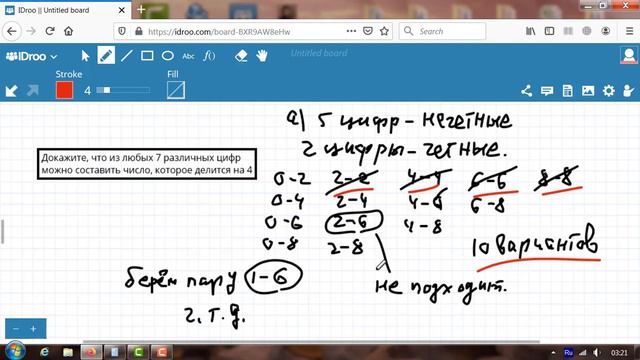 IDroo || Untitled board
https://idroo.com/board-BXR9AW8eHw
IDroo
Untitled board
Stroke
Fill
4
а) 5 цифр - нечетные
2 цифры - четные.
Докажите, что из любых 7 различных цифр
можно составить число, которое делится на 4
0-2 2-2 4-4 6-6 8-8
0-4 2-4 4-6 6-8
0-6 2-6 4-8
0-8 2-8
10 вариантов
берём пару 1-6
не подходит.
ч.т.д.
Ru
03:21